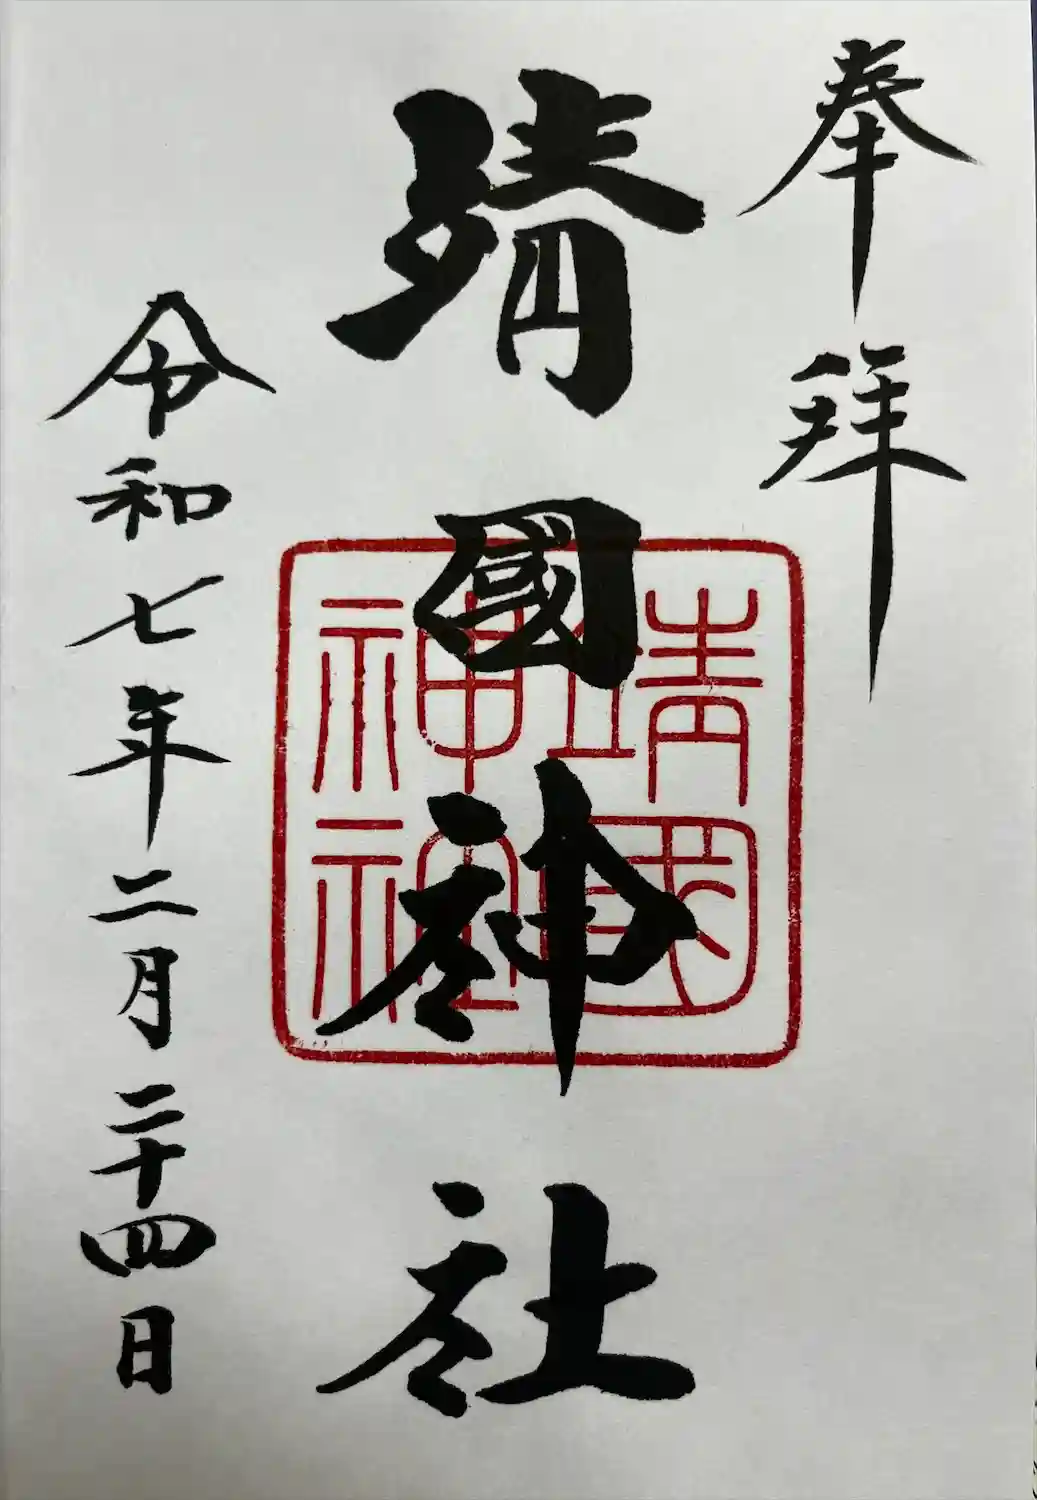 奉拝
靖國神社
靖國
神社
令和七年二月二十四日